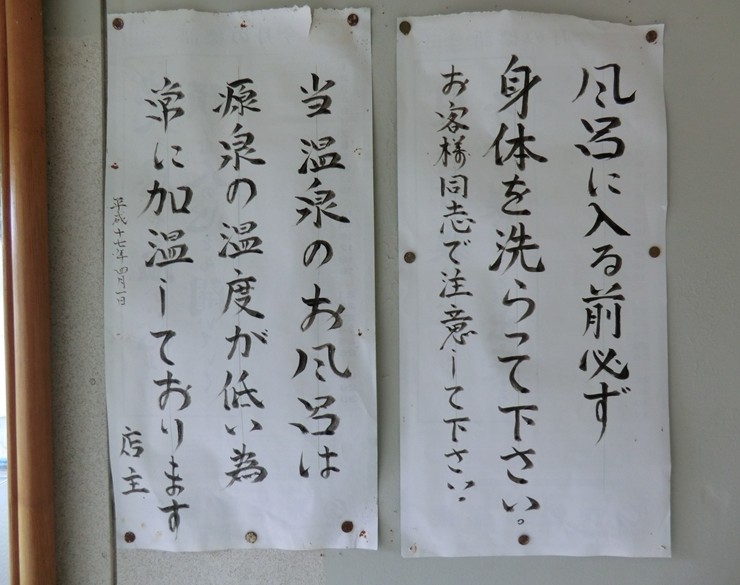 風呂に入る前必ず
身体を洗らって下さい。
お客様同志で注意して下さい。
当温泉のお風呂は
源泉の温度が低い為
常に加温しております
平成十七年四月一日
店主